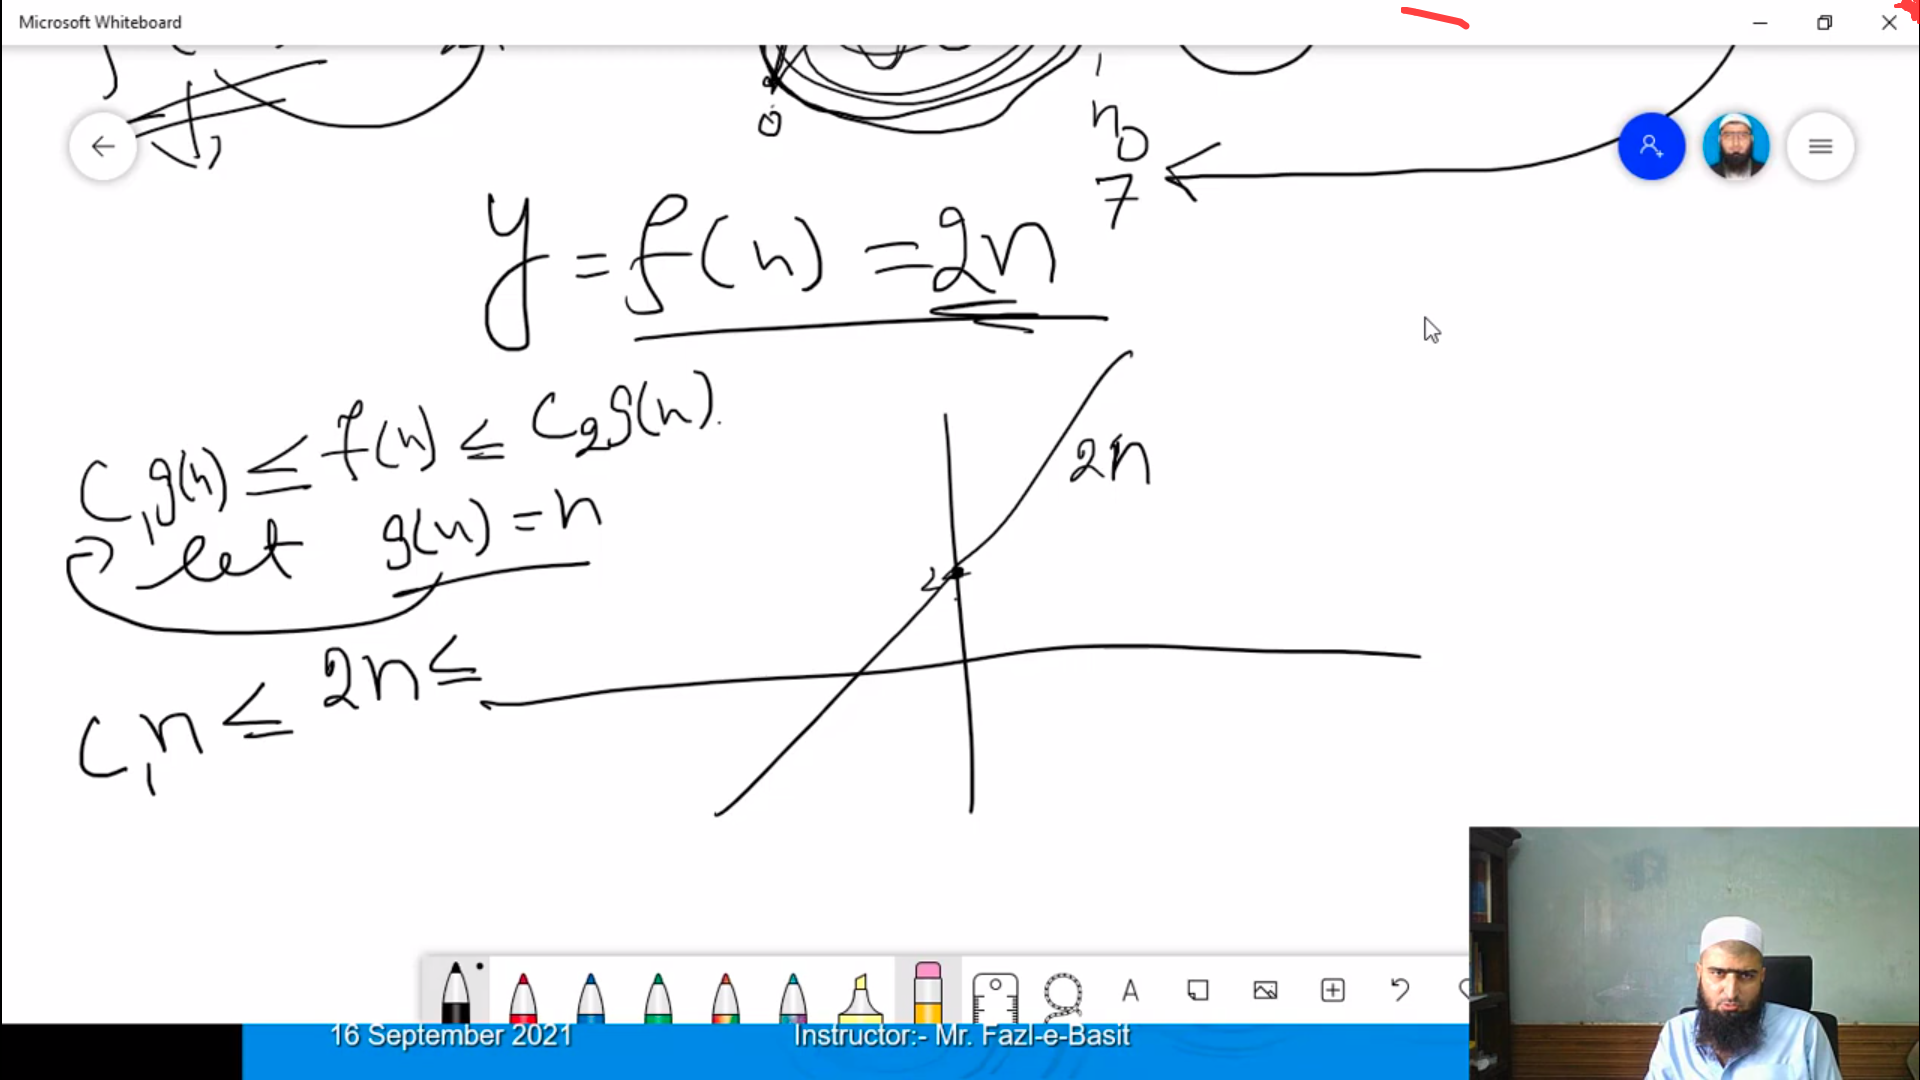 Microsoft Whiteboard
0
n0
7
y = f(n) = 2n
C1g(n) ≤ f(n) ≤ C2g(n).
let g(n) = n
2n
2
C1n ≤ 2n ≤
A
16 September 2021
Instructor:- Mr. Fazl-e-Basit